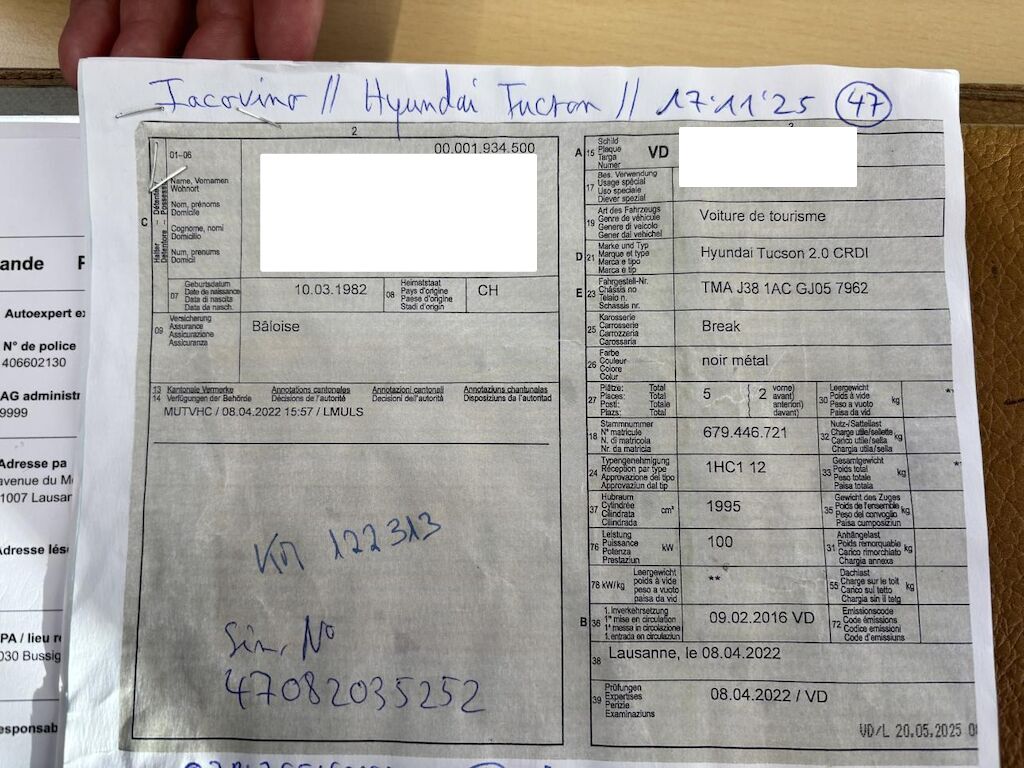 Iacovino // Hyundai Tucson // 17.11.25 47
2
00.001.934.500
01-06
Name, Vornamen
Wohnort
Nom, prénoms
Domicile
Cognome, nomi
Domicilio
Num, prenums
Domicil
C
Halter
07
Geburtsdatum
Date de naissance
Data di nascita
Data da nasch.
10.03.1982
08
Heimatstaat
Pays d'origine
Paese d'origine
Stadi d'origin
CH
09
Versicherung
Assurance
Assicurazione
Assicuranza
Bâloise
13 Kantonale Vermerke Annotations cantonales Annotazioni cantonali Annotaziuns chantunalas
14 Verfügungen der Behörde Décisions de l'autorité Decisioni dell'autorità Disposiziuns da l'autoritad
MUTVHC / 08.04.2022 15:57 / LMULS
KM 122313
Sin. No
47082035252
A 15
Schild
Plaque
Targa
Numer
VD
17
Bes. Verwendung
Usage spécial
Uso speciale
Diever spezial
19
Art des Fahrzeugs
Genre de véhicule
Genere di veicolo
Gener dal vehichel
Voiture de tourisme
D 21
Marke und Typ
Marque et type
Marca e tipo
Marca e tip
Hyundai Tucson 2.0 CRDI
E 23
Fahrgestell-Nr.
Châssis no
Telaio n.
Schassis nr.
TMA J38 1AC GJ05 7962
25
Karosserie
Carrosserie
Carrozzeria
Carossaria
Break
26
Farbe
Couleur
Colore
Colur
noir métal
27
Plätze: Total
Places: Total
Posti: Totale
Plazs: Total
5
2
vorne)
avant)
anteriori)
davant)
30
Leergewicht
Poids à vide
Peso a vuoto
Paisa da vid
kg
18
Stammnummer
N° matricule
N. di matricola
Nr. da matricla
679.446.721
32
Nutz-/Sattellast
Charge utile/sellette
Carico utile/sella
Chargia utila/sella
kg
24
Typengenehmigung
Réception par type
Approvazione del tipo
Approvaziun dal tip
1HC1 12
33
Gesamtgewicht
Poids total
Peso totale
Paisa totala
kg
37
Hubraum
Cylindrée
Cilindrata
Cilindrada
cm³
1995
35
Gewicht des Zuges
Poids de l'ensemble
Peso del convoglio
Paisa cumposiziun
kg
76
Leistung
Puissance
Potenza
Prestaziun
kW
100
31
Anhängelast
Poids remorquable
Carico rimorchiato
Chargia annexa
kg
78 kW/kg
Leergewicht
poids à vide
peso a vuoto
paisa da vid
**
55
Dachlast
Charge sur le toit
Carico sul tetto
Chargia sin il tetg
kg
B 36
1. Inverkehrsetzung
1re mise en circulation
1a messa in circolazione
1. entrada en circulaziun
09.02.2016 VD
72
Emissionscode
Code émissions
Codice emissioni
Code d'emissiuns
38
Lausanne, le 08.04.2022
39
Prüfungen
Expertises
Perizie
Examinaziuns
08.04.2022 / VD
VD/L 20.05.2025
ande
Autoexpert
N° de police
406602130
AG administr
9999
Adresse pa
avenue du M
1007 Lausar
Adresse lés
PA / lieu
030 Bussig
esponsab